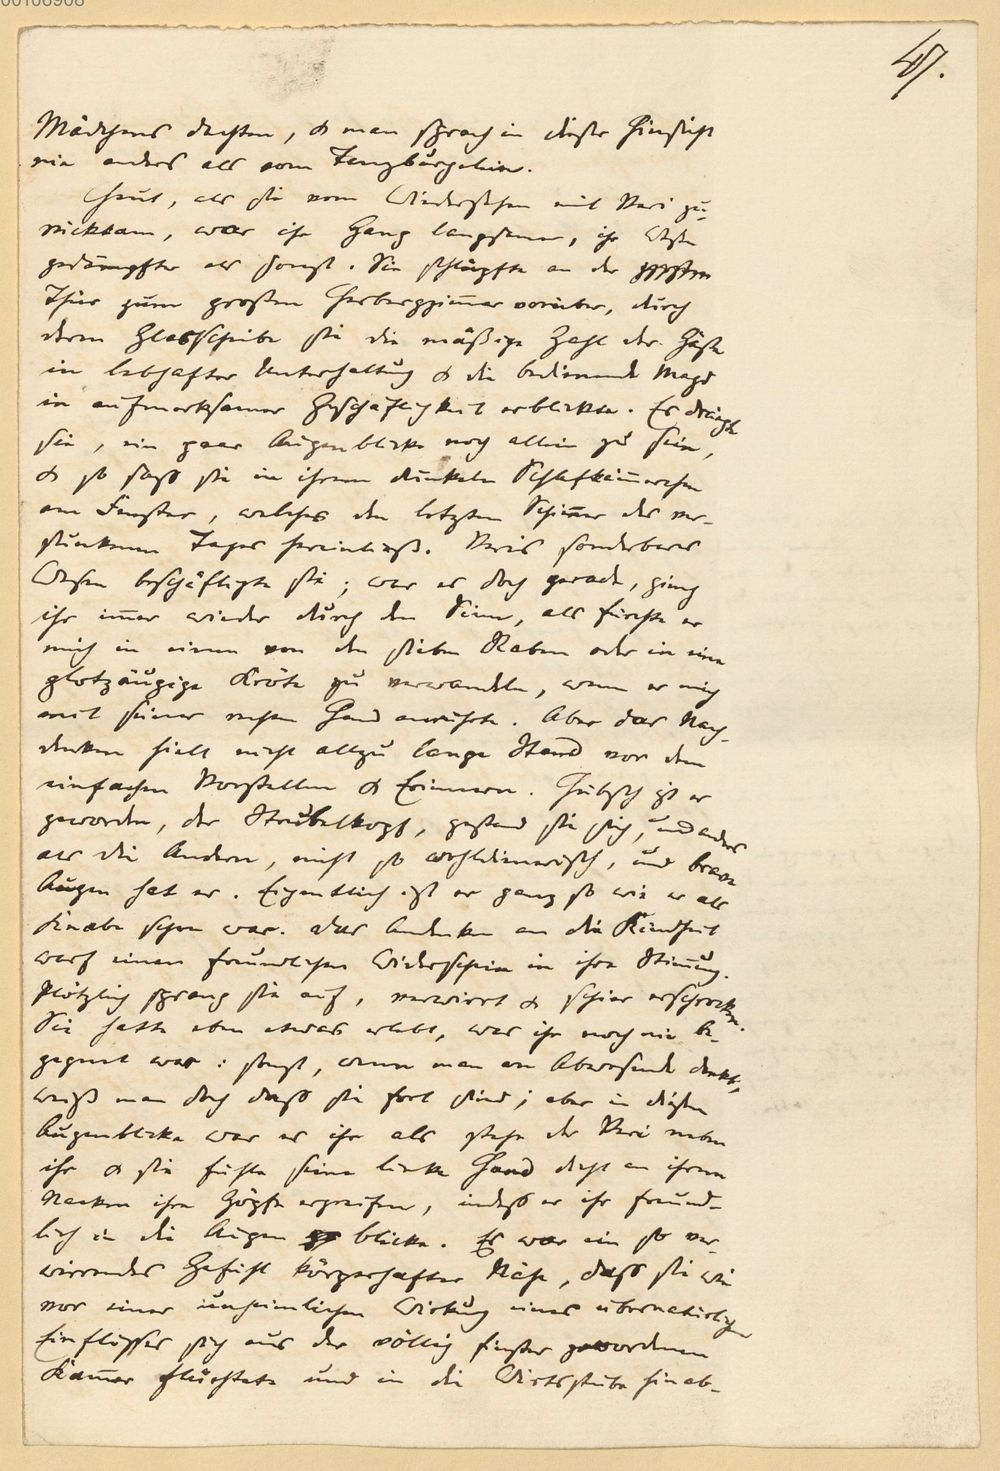 00106908
47.
Mädchens dachten, & man sprach in dieser Hinsicht
nie anders als vom Tanzbürgelein.
Heut, als sie vom Wiedersehen mit Veri zu-
rückkam, war ihr Gang langsamer, ihr Wesen
gedämpfter als sonst. Sie schlüpfte an der
Thür zum großen Herbergzim̄er vorüber, durch
deren Glasscheibe sie die mäßige Zahl der Gäste
in lebhafter Unterhaltung & die bedienende Magd
in aufmerksamer Geschäftigkeit erblickte. Es drängte
sie, ein paar Augenblicke noch allein zu sein,
& so saß sie in ihrem dunkeln Schlafkäm̄erchen
am Fenster, welches den letzten Schim̄er des ver-
sunkenen Tages hereinließ. Veris sonderbares
Wesen beschäftigte sie; war es doch gerade, ging
ihr im̄er wieder durch den Sinn, als fürchte er
mich in einen von den sieben Raben oder in eine
glotzäugige Kröte zu verwandeln, wenn er mich
mit seiner rechten Hand anrührte. Aber das Nach-
denken hielt nicht allzu lange Stand vor dem
einfachen Vorstellen & Erinnern. Hübsch ist er
geworden, der Strubelkopf, gestand sie sich, und anders
als die Andern, nicht so wohldienerisch, und brave
Augen hat er. Eigentlich ist er ganz so wie er als
Knabe schon war. Das Andenken an die Kindheit
warf einen freundlichen Widerschein in ihre Stim̄ung.
Plötzlich sprang sie auf, verwirrt & schier erschrocken.
Sie hatte eben etwas erlebt, was ihr noch nie be-
gegnet war: sonst, wenn man an Abwesende denkt,
weiß man doch daß sie fort sind; aber in diesem
Augenblicke war es ihr als stehe der Veri neben
ihr & sie fühle seine linke Hand dicht an ihrem
Nacken ihre Zöpfe ergreifen, indeß er ihr freund-
lich in die Augen blicke. Es war ein so ver-
wirrendes Gefühl körperhafter Nähe, daß sie wie
vor einer unheimlichen Wirkung eines übernatürlichen
Einflusses sich aus der völlig finster gewordenen
Kam̄er flüchtete und in die Wirtsstube hinab-